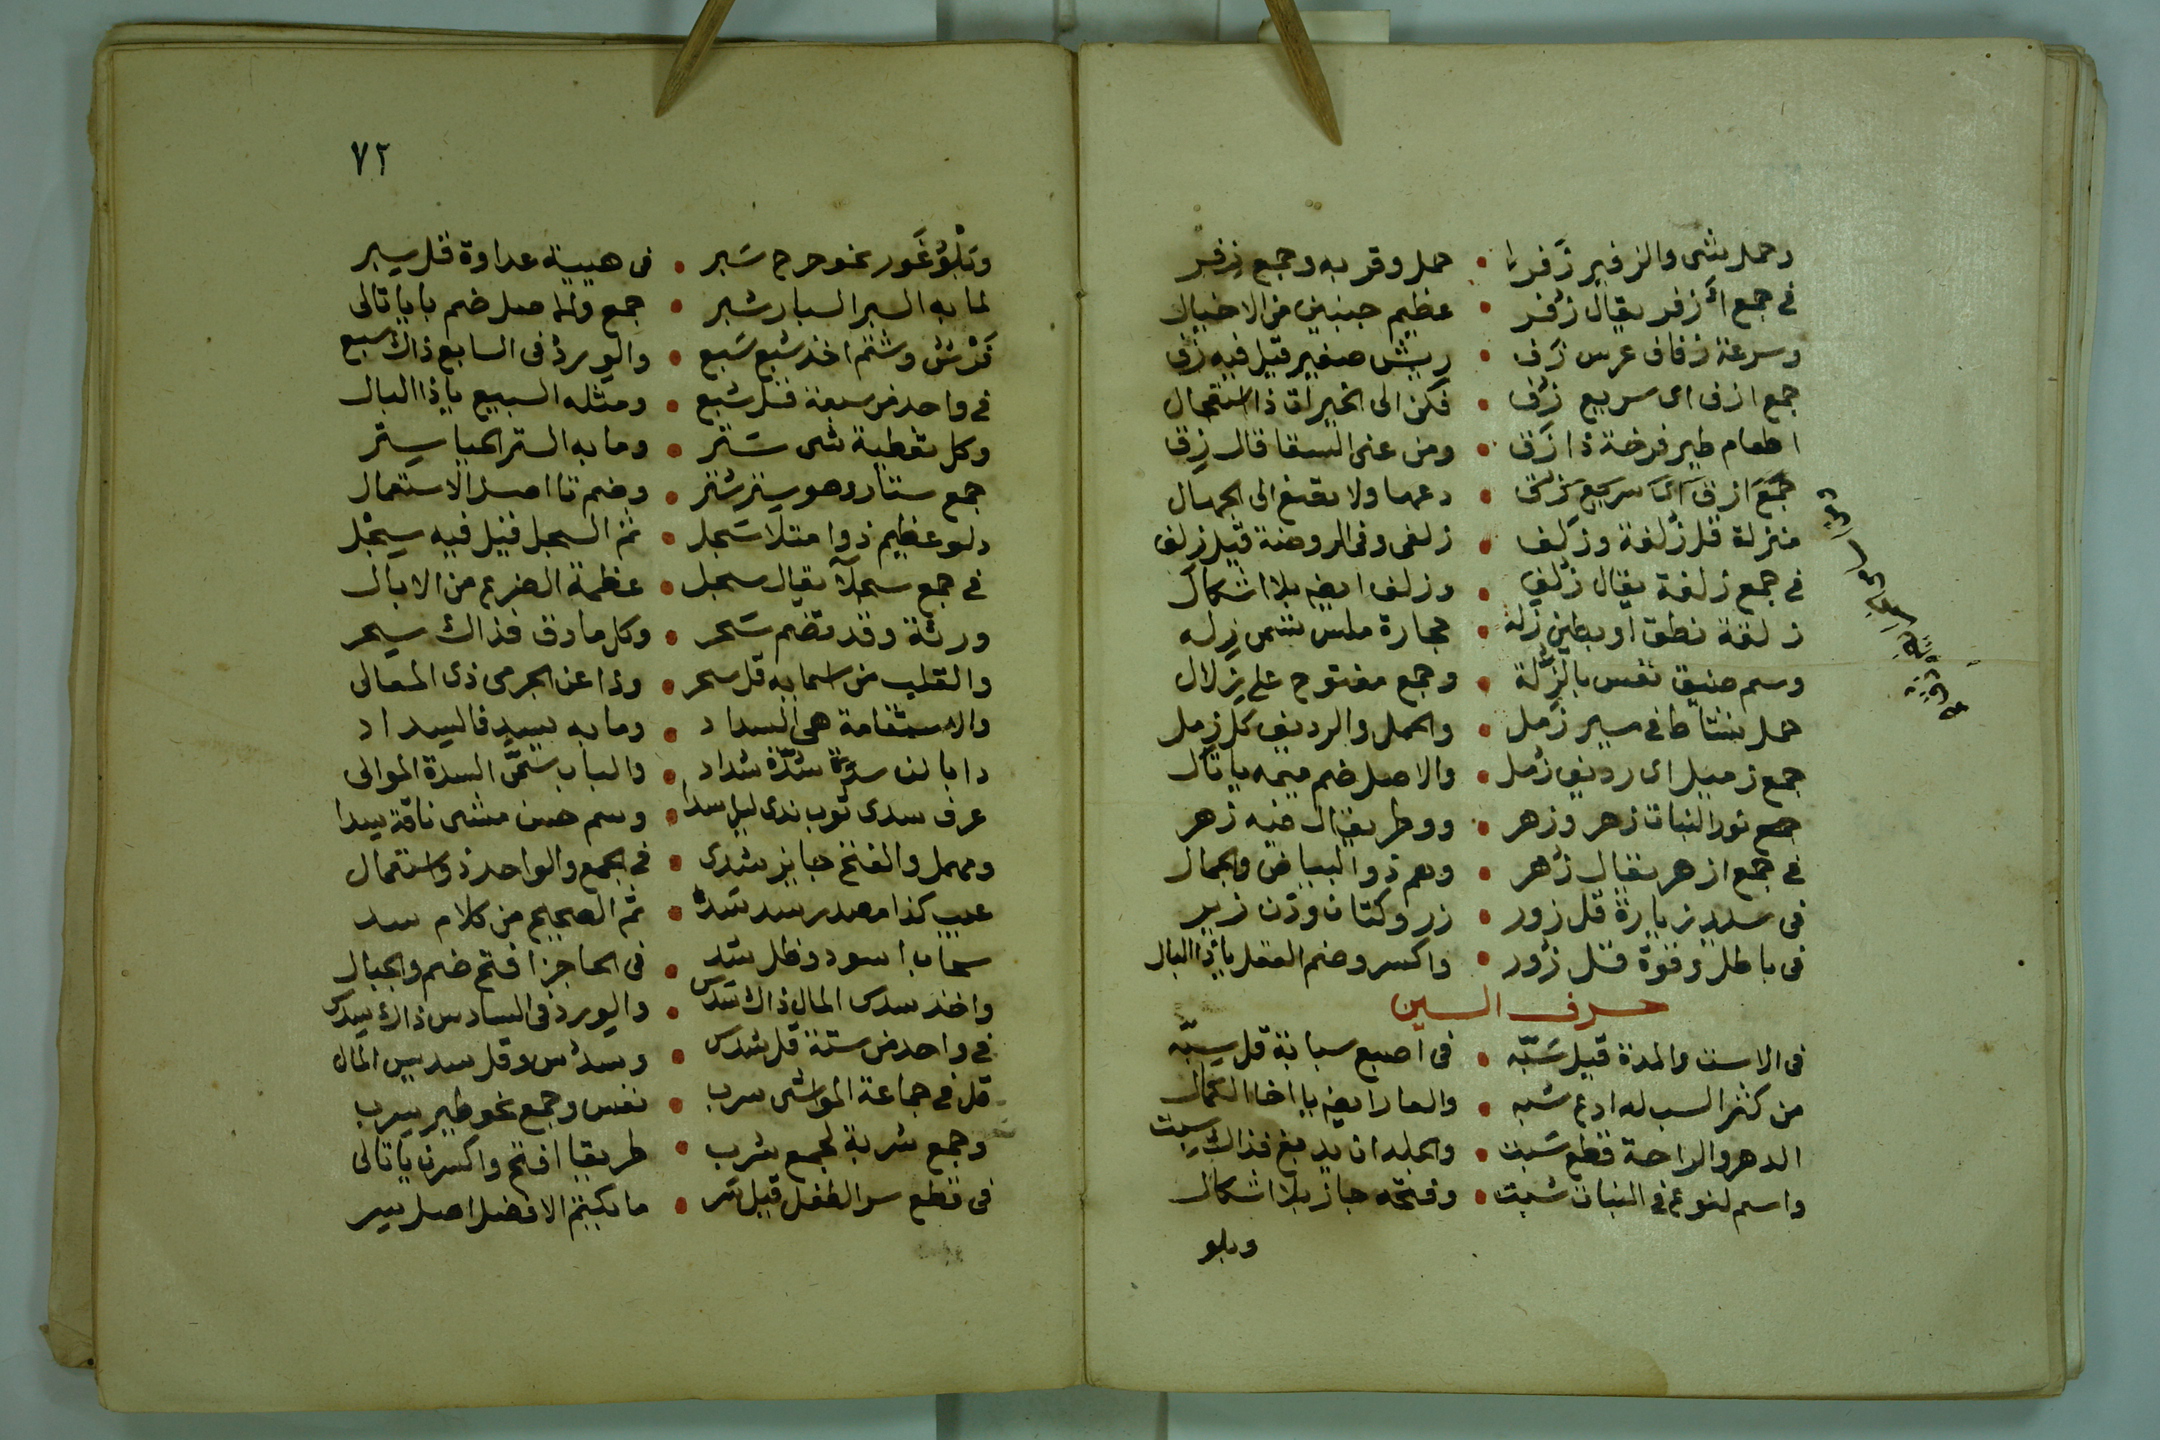 وحمل شى والزفير زفر • حمل وقربه وجمع زفر
فى جمع ازفر يقال زفر • عظيم جنبين من الاخيال
وسرعة زفاف عرس زف • ريش صغير قيل فيه زف
جمع ازف اى سريع زف • فكن الى الخيرات ذا استعجال
اطعام طير فرخة ذا زق • ومن عنى السقا قال زق
جمع ازق اى سريع زق • دعها ولا تصغ الى الجهال
منزلة قل زلفة وزلف • زلفى وفى الروضة قيل زلف
فى جمع زلفة يقال زلف • وزلف ايضا بلا اشكال
زلقة نطق او بطين زلة • حجارة ملس تسمى زله
وسم ضيق نفس بالزلة • وجمع مفتوح على زلال
حمل نشاطا فى سير زمل • والحمل والرديف كل زمل
جمع زميل اى رديف زمل • والاصل ضم ميمه يا تال
جمع نور النبات زهر وزهر • ووطر يقال فيه زهر
فى جمع ازهر يقال زهر • وهم ذووا البياض والجمال
فى سدر زيارة قل زور • زر وكتان وزن زير
فى باطل وقوة قل زور • واكسر وضم العقل يا ذا البال
حرف السين
فى الاست والمدة قيل سبه • فى اصبع سبابة قل سبه
من كثر السب له ادع سبه • والعار ايضا يا اخا الكمال
الدهر والراحة قطع سبت • والجلد ان يدبغ فذاك سبت
واسم لنوع فى النبات سبت • وفتحه جاز بلا اشكال
وبلو
٧٢
وبلو غور نحو جرح سبر • فى هيبة عداوة قل سبر
لما به السبر السبار سبر • جمع والاصل ضم با يا تالى
فرش وشتم اخذ سبع سبع • والورد فى السابع ذاك سبع
فى واحد من سبعة قل سبع • ومثله السبيع يا ذا البال
وكل تغطية شى ستر • وما به الستر الحيا ستر
جمع ستار وهو ستر ستر • وضم تا اصل الاستعمال
دلو عظيم ذو امتلا سجل • ثم السجل قيل فيه سجل
فى جمع سجلا يقال سجل • عظمة الضرع من الابال
ورئة وقد تضم سحر • وكل ما دق فذاك سحر
والقلب من اسما به قل سحر • وذا عن الجرمى ذى المعالى
والاستقامة هى السداد • وما به يسد فالسداد
دا بانف سدة سداد • والباب سمى السدة الموالى
عرف سدى ثوب ندى ليل سدا • وسم حسن مشى ناقة سدا
ومهمل والفتح جايز سدى • فى الجمع والواحد ذو استعمال
عيب كذا مصدر سد سد • ثم الصحيح من كلام سد
سحاب اسود وظل سد • فى الحاجز افتح ضم والجبال
واخذ سدس المال ذاك سدس • والورد فى السادس ذاك سدس
فى واحد من ستة قل سدس • وسدس وقل سديس المال
قل فى جماعة المواشى سرب • نفس وجمع نحو طير سرب
وجمع سربة لجمع سرب • طريقا افتح واكسرن يا تالى
فى قطع سر الطفل قيل سر • ما يكتم الافضل اصل سر